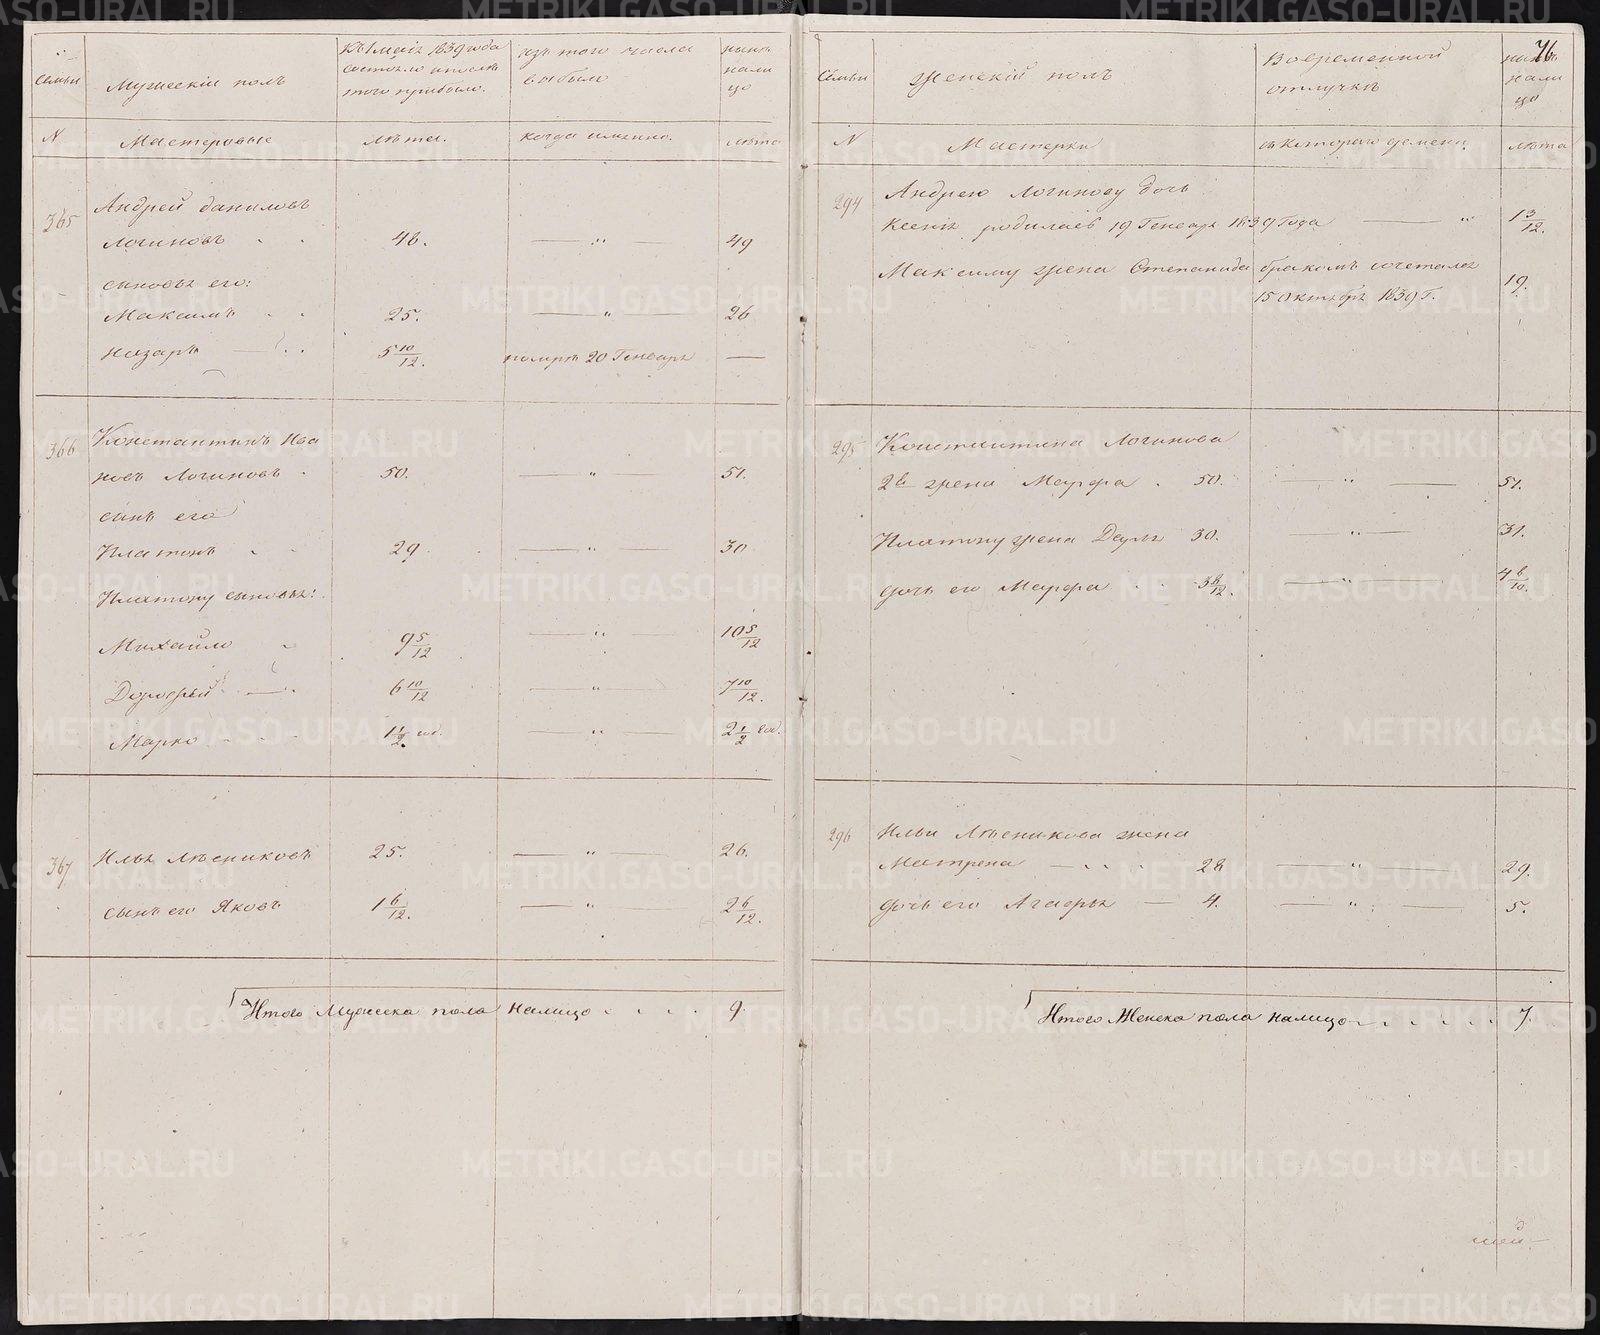 Семьи
Мужескій полъ
Къ 1 Маія 1839 года
состояло и после
того прибыло.
изъ того числа
выбыло
нынѣ
нали
цо
N
Мастеровые
лѣта.
когда имянно.
лѣта
365
Андрей Даниловъ
Логиновъ
48.
49
сыновья его:
Максимъ
25.
26
Назаръ
5 10/12.
помръ 20 Генваря
366
Константинъ Ива
новъ Логиновъ
50.
51.
сынъ его
Платонъ
29
30
Платону сыновья:
Михайло
9 5/12
10 5/12
Дорофей
6 10/12
7 10/12.
Марко
1 1/2 год.
2 1/2 год.
367
Илья Лѣсниковъ
25.
26.
сынъ его Яковъ
1 6/12.
2 6/12.
Итого Мужеска пола налицо
9.
76
Семьи
Женскій полъ
Во временной
отлучкѣ
нынѣ
нали
цо
N
Мастерки
съ котораго времени
лѣта
294
Андрею Логинову дочь
Ксенія родилась 19 Генваря 1839 Года
13/12.
Максиму жена Степанида бракомъ сочеталась
15 Октября 1839 Г.
19.
295
Константина Логинова
2я жена Марфа
50.
51.
Платону жена Дарья
30.
31.
дочь его Марфа
3 8/12.
4 8/10.
296
Ильи Лѣсникова жена
Матрена
28
29.
дочь его Агафья
4.
5.
Итого Женска пола налицо
7.
METRIKI.GASO-URAL.RU